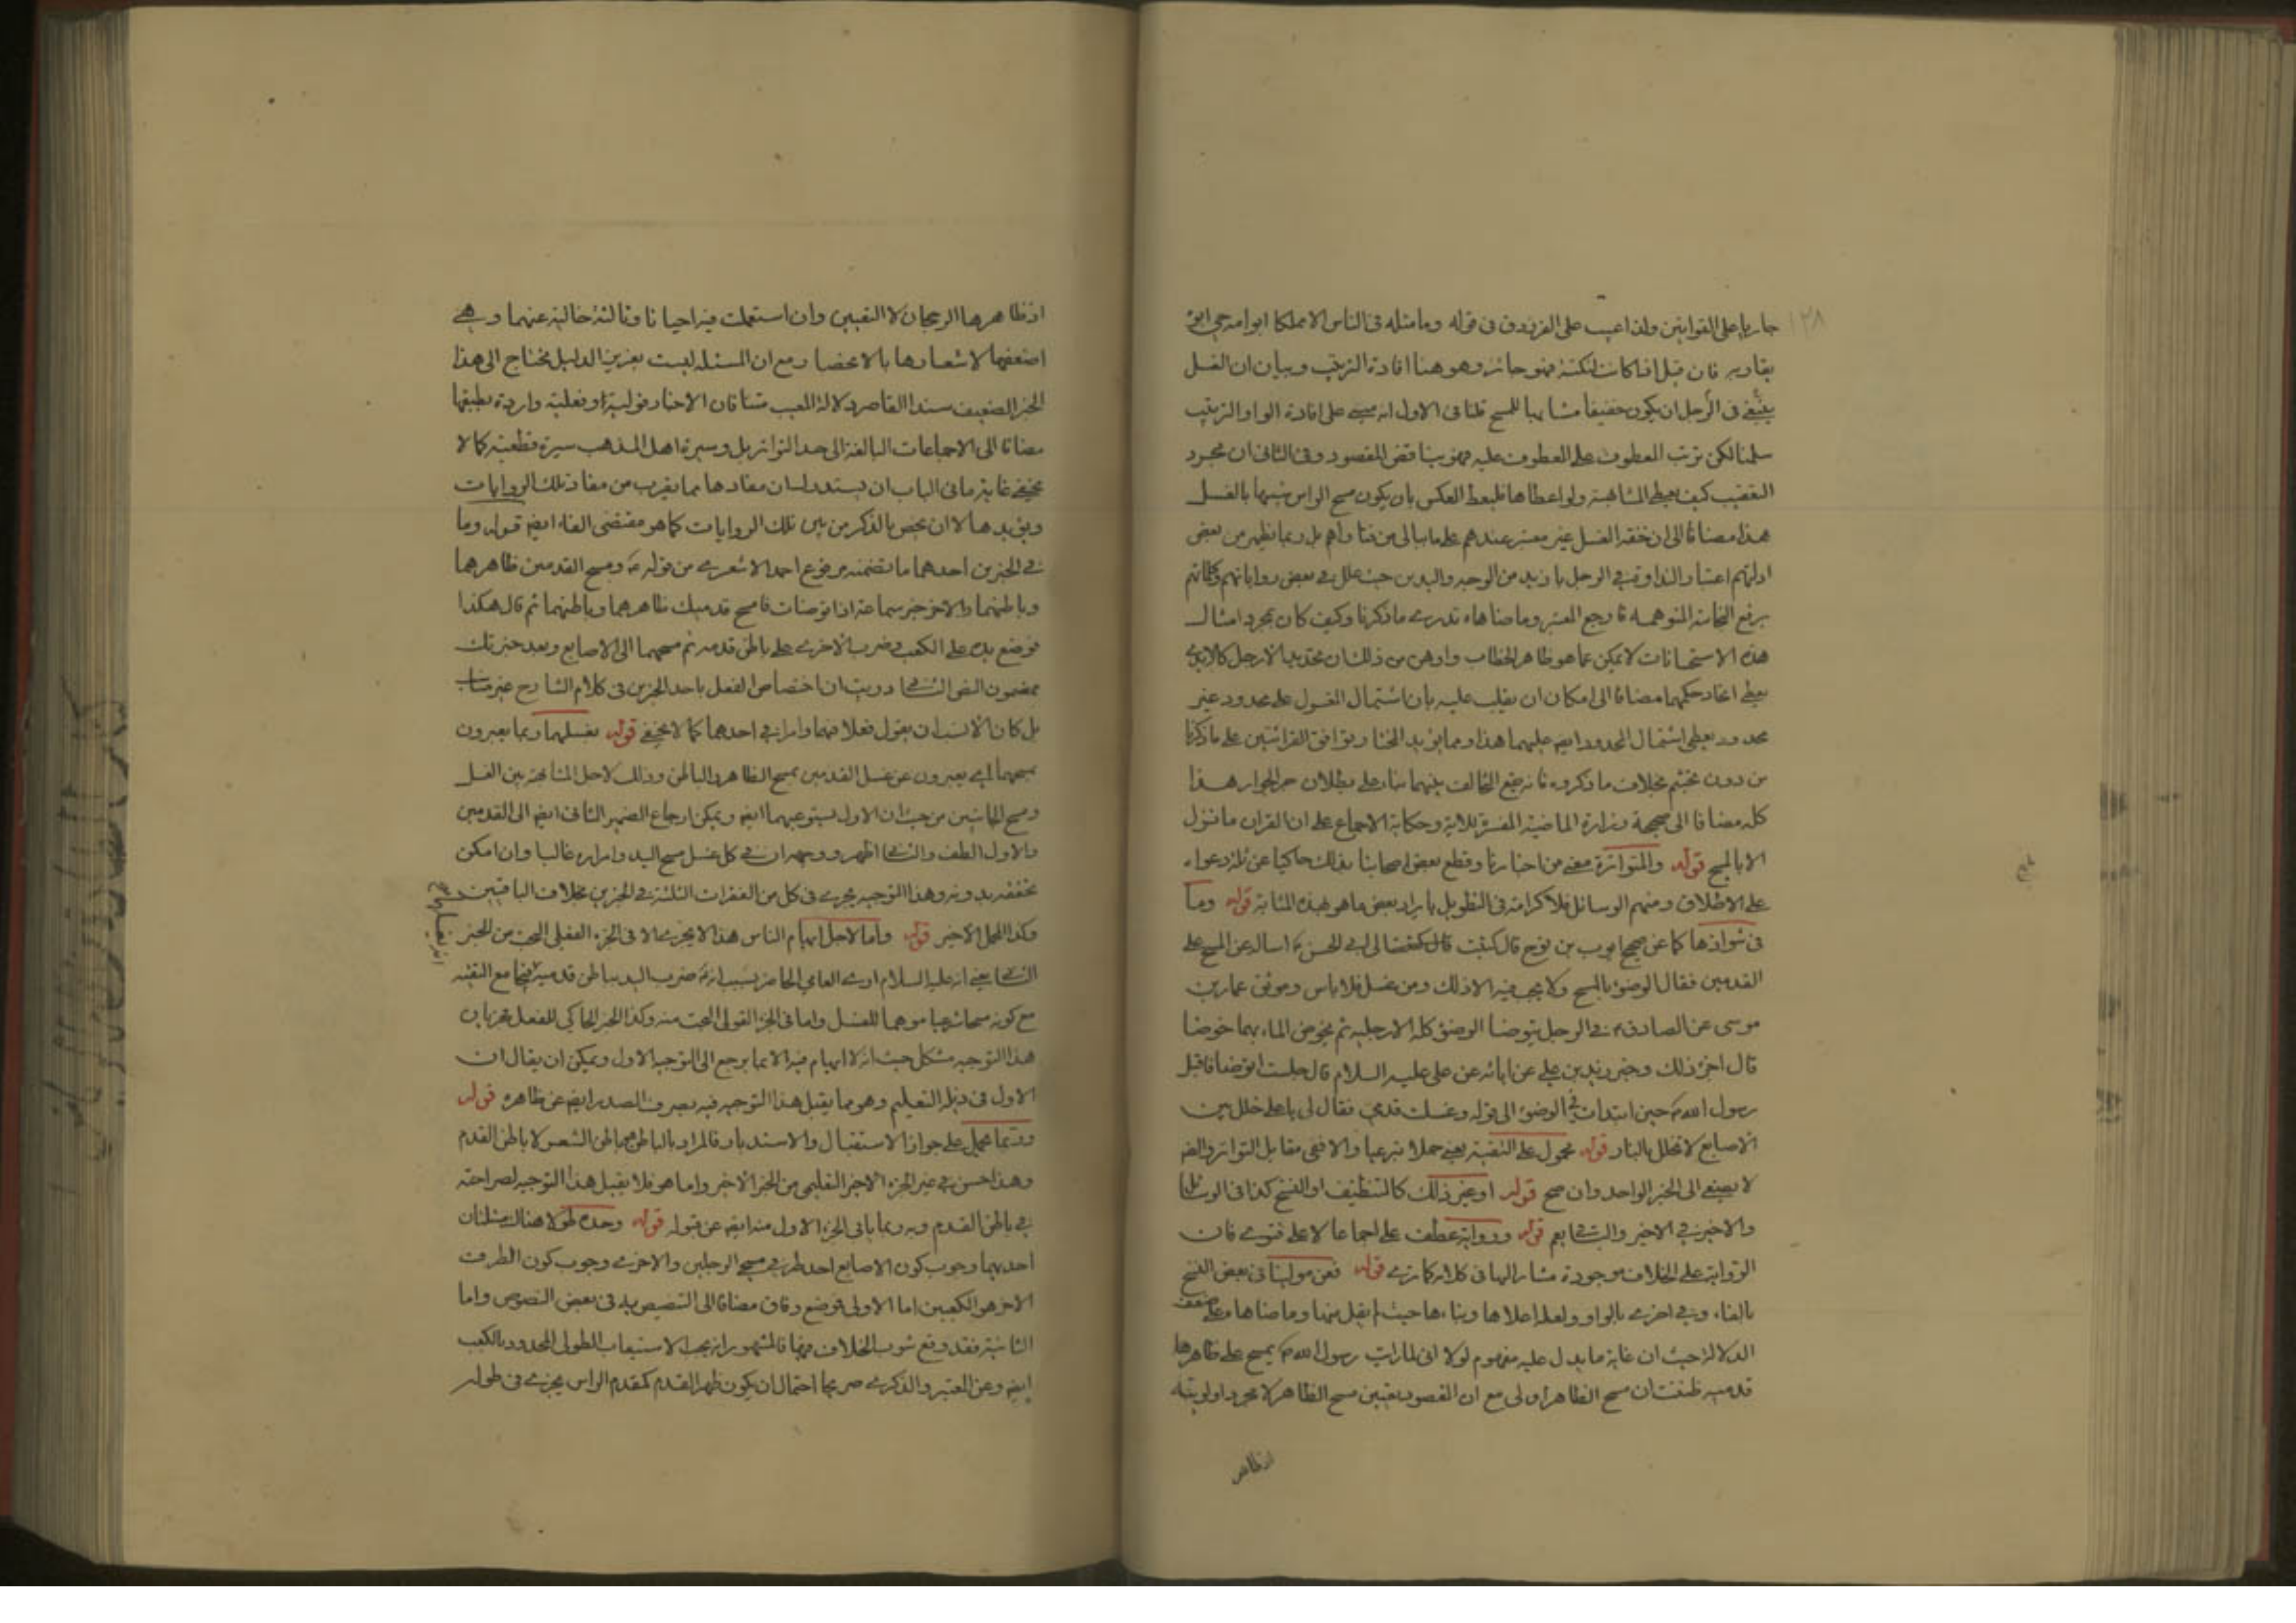 ١٢٨
جاريا على القوانين ولذا عيب على الفرزدق في قوله وما مثله في الناس الا مملكا ابو امه حي ابوه
يقاربه فان قيل اذا كانت لنكتة فهو جائز وهو هنا افادة الترتيب وبيان ان الغسل
ينبغي في الرجل ان يكون خفيفا مشابها للمسح قلنا في الاول انه مبني على افادة الواو الترتيب
سلمنا لكن ترتب المعطوف على المعطوف عليه فهو يناقض المقصود وفي الثاني ان مجرد
التعقيب كيف يعطي المشابهة ولو اعطاها فليعط العكس بان يكون مسح الراس شبيها بالغسل
هذا مضافا الى ان خفة الغسل غير معتبر عندهم على ما ببالي من فتاواهم بل ربما يظهر من بعض
ادلتهم اعتبار التداوق في الرجل بازيد من الوجه واليدين حيث علل في بعض رواياتهم وكلماتهم
برفع النجاسة المتوهمه فارجع البصر وما ضاهاه تدرى ما ذكرنا وكيف كان بمجرد امثال
هذه الاستحسانات لا يمكن عما هو ظاهر الخطاب واوهن من ذلك ان تحديد الارجل كالايدي
يعطي اتحاد حكمهما مضافا الى امكان ان يقلب عليه بان اشتمال المغسول على محدود وغير
محدود يعطي اشتمال الممسوح ايضا عليهما هذا ومما يؤيد المختار توافق القرائتين على ما ذكرنا
من دون تجشم بخلاف ما ذكروه فانه يقع التخالف بينهما بناء على بطلان جر الجوار هذا
كله مضافا الى صحيحة زرارة الماضية المفسرة للاية وحكاية الاجماع على ان القران ما نزل
الا بالمسح قوله والمتواترة معنى من اخبارنا وقطع بعض اصحابنا بذلك حاكيا عن ثلة دعواه
على الاطلاق ومنهم الوسائل فلا كرامة في التطويل بايراد بعض ما هو بهذه المثابة قوله وما
في شواذها كما عن صحيح ايوب بن نوح قال كتبت الى ابي الحسن ع اساله عن المسح على
القدمين فقال الوضوء بالمسح ولا يجب فيه الا ذلك ومن غسل فلا باس وموثق عمار بن
موسى عن الصادق ع في الرجل يتوضا الوضوء كله الا رجليه ثم يخوض الماء بهما خوضا
قال اجزء ذلك وخبر زيد بن علي عن ابائه عن علي عليه السلام قال جلست اتوضا فاقبل
رسول الله ص حين ابتدات في الوضوء الى قوله وغسلت قدمي فقال لي يا علي خلل بين
الاصابع لا تخلل بالنار قوله محمول على التقية يعني حملا تبرعيا والا ففي مقابل التواتر والضرورة
لا يصغى الى الخبر الواحد وان صح قوله او غير ذلك كالتنظيف او النسخ كذا في الوسائل
والاخير في الاخير والثاني يعم قوله ورواية عطف على اجماعا لا على فتوى فان
الرواية على الخلاف موجودة مشار اليها في كلامه قوله فعن مولينا في بعض النسخ
بالفاء وفي اخرى بالواو ولعله اعلاها وبناءها حيث لم يقل منها وما ضاها مع ضعف
الدلالة حيث ان غاية ما يدل عليه مفهوم لولا اني لما رايت رسول الله ص يمسح على ظاهرها
قدميه ظننت ان مسح الظاهر اولى مع ان المقصود تعيين مسح الظاهر لا مجرد اولويته
اذ ظاهر
اذ ظاهرها الرجحان لا التعيين وان استعملت فيه احيانا وثالثة خالية عنهما وهي
اضعفها لاشعارها بالانحصار مع ان المسئلة ليست بعزيز الدليل تحتاج الى هذا
الخبر الضعيف سندا القاصر دلالة المعيب متنا فان الاخبار قولية او فعلية واردة بطبقها
مضافا الى الاجماعات البالغة الى حد التواتر بل وسيرة اهل المذهب سيرة قطعية كما لا
يخفى غاية ما في الباب ان يستدل بان مفادها مما يقرب من مفاد تلك الروايات
ويؤيدها لا ان يخص بالذكر من بين تلك الروايات كما هو مقتضى الفاء ايضا قوله وما
في الخبرين احدهما ما تضمنه مرفوع احمد الاشعري من قوله ع ومسح القدمين ظاهرهما
وباطنهما والاخر خبر سماعة اذا توضات فامسح قدميك ظاهرهما وباطنهما ثم قال هكذا
فوضع يده على الكعب وضرب الاخرى على باطن قدمه ثم مسحهما الى الاصابع وبعد خبرتك
بمضمون النص الثاني دريت ان اختصاص الفعل باحد الخبرين في كلام الشارح غير مناسب
بل كان الانسب ان يقول فعلا فيهما وامرا في احدهما كما لا يخفى قوله بغسلهما ربما يعبرون
بمسحهما اي يعبرون عن غسل القدمين بمسح الظاهر والباطن وذلك لاجل المشابهة بين الغسل
ومسح الجانبين من حيث ان الاول يستوعبهما ايضا ويمكن ارجاع الضمير الثاني ايضا الى القدمين
والاول الطف والثاني اظهر ووجهه ان في كل غسل مسح اليد وامراره غالبا وان امكن
تحققه بدونه وهذا التوجيه يجري في كل من الفقرات الثلثة في الخبرين بخلاف الباقيين
وكذا المحمل الاخير قوله واما لاجل ايهام الناس هذا لا يجري الا في الجزء الفعلي البحت من الخبر
الثاني يعني انه عليه السلام اوى العامي الحاضر بسبب انه ع ضرب اليد بباطن قدميه فجامع التقية
مع كونه مسحا شرعيا موهما للغسل واما في الجزء القولي البحت منه وكذا الخبر الحاكي للفعل فجريان
هذا التوجيه مشكل حيث انه لا ايهام فيه الا بما يرجع الى التوجيه الاول ويمكن ان يقال ان
الاول في ذيله التعليم وهو مما يقبل هذا التوجيه فيه يصرف الصدر ايضا عن ظاهره قوله
وربما يحمل على جواز الاستقبال والاستدبار فالمراد بالباطن محل باطن الشعر لا باطن القدم
وهذا حسن في غير الجزء الاخير التعليمي من الخبر الاخير واما هو فلا يقبل هذا التوجيه لصراحته
في باطن القدم وبه وربما يابى الجزء الاول منه ايضا عن قبوله قوله وحده طولا هنا مسئلتان
احديهما وجوب كون الاصابع احد طرفي مسح الرجلين والاخرى وجوب كون الطرف
الاخر هو الكعبين اما الاولى فوضع وفاق مضافا الى التنصيص به في بعض النصوص واما
الثانية فقد وقع شوب الخلاف فيها فالمشهور انه يجب الاستيعاب الطولي المحدود بالكعب
ايضا وعن المعتبر والذكرى صريحا احتمال ان يكون ظهر القدم كمقدم الراس يجزي في طوله